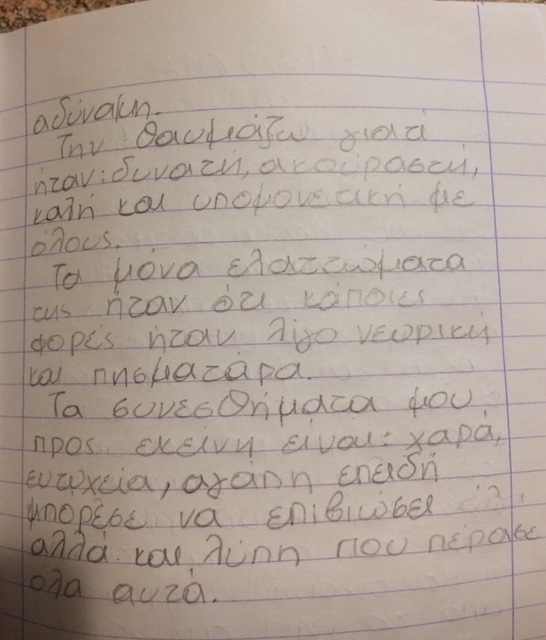 αδύναμη.
Την θαυμάζω γιατί
ήταν: δυνατή, ακούραστη,
καλή και υπομονετική με
όλους.
Τα μόνα ελαττώματα
της ήταν ότι κάποιες
φορές ήταν λίγο νευρική
και πησματάρα.
Τα συνεσθήματα μου
προς εκείνη είναι: χαρά,
ευτυχεία, αγάπη επειδή
μπόρεσε να επιβιώσει
αλλά και λύπη που πέρασε
ολα αυτά.